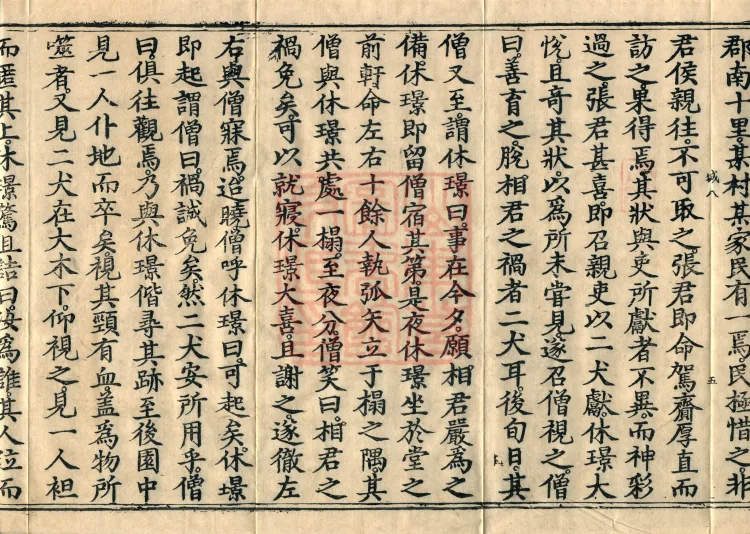 郡南十里某村某家民有一焉民極惜之非
城八
五
君侯親往不可取之張君即命駕齎厚直而
訪之果得焉其狀與吏所獻者不異而神彩
過之張君甚喜即召親吏以二犬獻休璟大
悅且奇其狀以爲所未嘗見遂召僧視之僧
曰善育之脫相君之禍者二犬耳後旬日其
僧又至謂休璟曰事在今夕願相君嚴爲之
備休璟即留僧宿其第是夜休璟坐於堂之
前軒命左右十餘人執弧矢立于榻之隅其
僧與休璟共處一榻至夜分僧笑曰相君之
禍免矣可以就寢休璟大喜且謝之遂徹左
右與僧寐焉迨曉僧呼休璟曰可起矣休璟
即起謂僧曰禍誠免矣然二犬安所用乎僧
曰俱往觀焉乃與休璟偕尋其跡至後園中
見一人仆地而卒矣視其頸有血蓋爲物所
噬者又見二犬在大木下仰視之見一人袒
而匿其上休璟驚且詰曰汝爲誰其人泣而